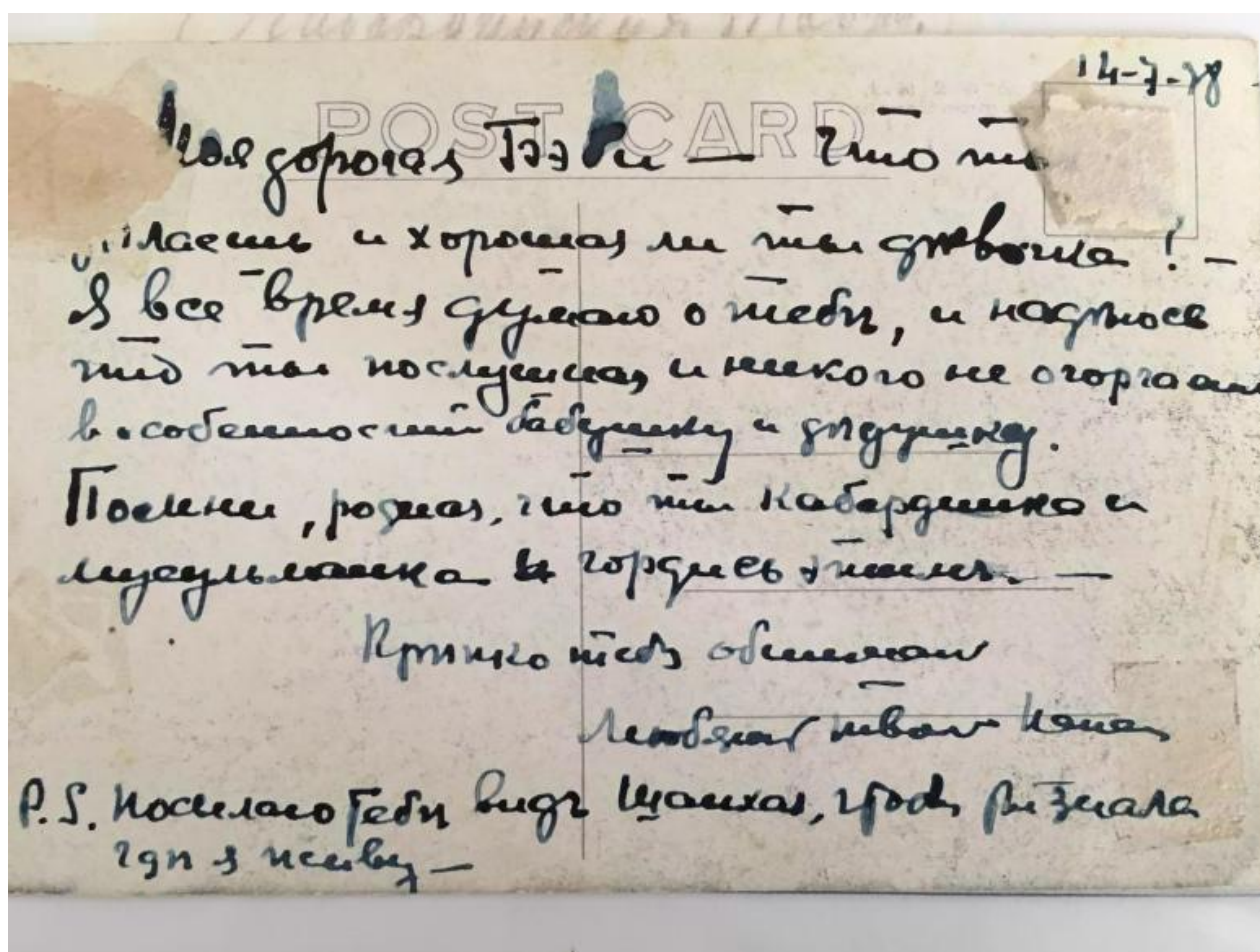 14-7-38
POST CARD
Моя дорогая Бэби — Что ты
делаешь и хорошая ли ты дѣвочка! —
Я все время думаю о тебѣ, и надѣюсь
что ты послушная и никого не огорчаешь
в особенности бабушку и дѣдушку.
Помни, родная, что ты Кабардинка и
мусульманка и гордись этимъ. —
Крѣпко тебя обнимаю
Любящая твоя
P.S. Посылаю Тебѣ видъ Шанхая, чтобы ты знала
гдѣ я живу —